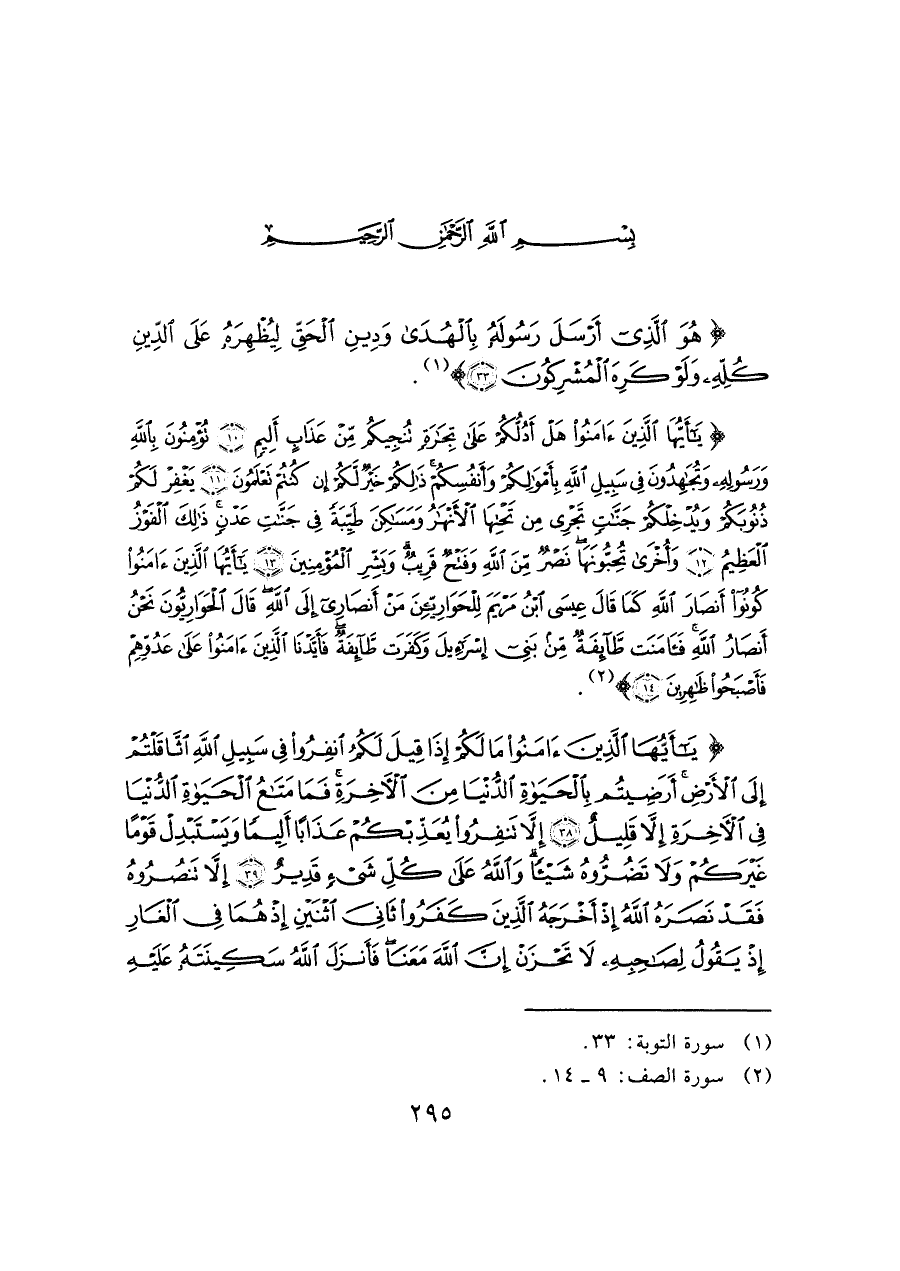 بِسْمِ ٱللَّهِ ٱلرَّحْمَٰنِ ٱلرَّحِيمِ
﴿ هُوَ ٱلَّذِىٓ أَرْسَلَ رَسُولَهُۥ بِٱلْهُدَىٰ وَدِينِ ٱلْحَقِّ لِيُظْهِرَهُۥ عَلَى ٱلدِّينِ
كُلِّهِۦ وَلَوْ كَرِهَ ٱلْمُشْرِكُونَ ٣٣ ﴾(١) .
﴿ يَٰٓأَيُّهَا ٱلَّذِينَ ءَامَنُوا۟ هَلْ أَدُلُّكُمْ عَلَىٰ تِجَٰرَةٍ تُنجِيكُم مِّنْ عَذَابٍ أَلِيمٍ ١٠ تُؤْمِنُونَ بِٱللَّهِ
وَرَسُولِهِۦ وَتُجَٰهِدُونَ فِى سَبِيلِ ٱللَّهِ بِأَمْوَٰلِكُمْ وَأَنفُسِكُمْ ۚ ذَٰلِكُمْ خَيْرٌ لَّكُمْ إِن كُنتُمْ تَعْلَمُونَ ١١ يَغْفِرْ لَكُمْ
ذُنُوبَكُمْ وَيُدْخِلْكُمْ جَنَّٰتٍ تَجْرِى مِن تَحْتِهَا ٱلْأَنْهَٰرُ وَمَسَٰكِنَ طَيِّبَةً فِى جَنَّٰتِ عَدْنٍ ۚ ذَٰلِكَ ٱلْفَوْزُ
ٱلْعَظِيمُ ١٢ وَأُخْرَىٰ تُحِبُّونَهَا ۖ نَصْرٌ مِّنَ ٱللَّهِ وَفَتْحٌ قَرِيبٌ ۗ وَبَشِّرِ ٱلْمُؤْمِنِينَ ١٣ يَٰٓأَيُّهَا ٱلَّذِينَ ءَامَنُوا۟
كُونُوٓا۟ أَنصَارَ ٱللَّهِ كَمَا قَالَ عِيسَى ٱبْنُ مَرْيَمَ لِلْحَوَارِيِّـۧنَ مَنْ أَنصَارِىٓ إِلَى ٱللَّهِ ۖ قَالَ ٱلْحَوَارِيُّونَ نَحْنُ
أَنصَارُ ٱللَّهِ ۖ فَـَٔامَنَت طَّآئِفَةٌ مِّنۢ بَنِىٓ إِسْرَٰٓءِيلَ وَكَفَرَت طَّآئِفَةٌ ۖ فَأَيَّدْنَا ٱلَّذِينَ ءَامَنُوا۟ عَلَىٰ عَدُوِّهِمْ
فَأَصْبَحُوا۟ ظَٰهِرِينَ ١٤ ﴾(٢) .
﴿ يَٰٓأَيُّهَا ٱلَّذِينَ ءَامَنُوا۟ مَا لَكُمْ إِذَا قِيلَ لَكُمُ ٱنفِرُوا۟ فِى سَبِيلِ ٱللَّهِ ٱثَّاقَلْتُمْ
إِلَى ٱلْأَرْضِ ۚ أَرَضِيتُم بِٱلْحَيَوٰةِ ٱلدُّنْيَا مِنَ ٱلْءَاخِرَةِ ۚ فَمَا مَتَٰعُ ٱلْحَيَوٰةِ ٱلدُّنْيَا
فِى ٱلْءَاخِرَةِ إِلَّا قَلِيلٌ ٣٨ إِلَّا تَنفِرُوا۟ يُعَذِّبْكُمْ عَذَابًا أَلِيمًا وَيَسْتَبْدِلْ قَوْمًا
غَيْرَكُمْ وَلَا تَضُرُّوهُ شَيْـًٔا ۗ وَٱللَّهُ عَلَىٰ كُلِّ شَىْءٍ قَدِيرٌ ٣٩ إِلَّا تَنصُرُوهُ
فَقَدْ نَصَرَهُ ٱللَّهُ إِذْ أَخْرَجَهُ ٱلَّذِينَ كَفَرُوا۟ ثَانِىَ ٱثْنَيْنِ إِذْ هُمَا فِى ٱلْغَارِ
إِذْ يَقُولُ لِصَٰحِبِهِۦ لَا تَحْزَنْ إِنَّ ٱللَّهَ مَعَنَا ۖ فَأَنزَلَ ٱللَّهُ سَكِينَتَهُۥ عَلَيْهِ
(١) سورة التوبة: ٣٣ .
(٢) سورة الصف: ٩ ـ ١٤ .
٢٩٥